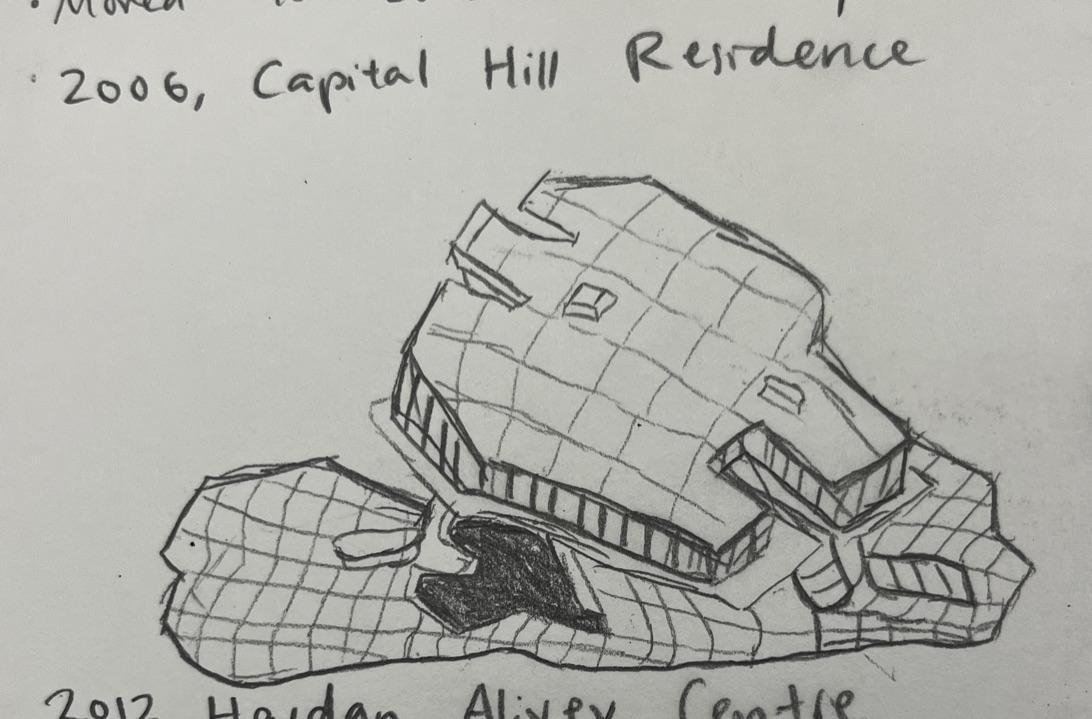 · Moved
· 2006, Capital Hill Residence
2012 Haydar Aliyev Centre